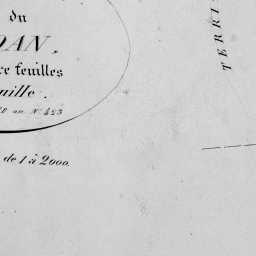 du
DAN,
re feuilles
uille.
au N.º 423
de 1 à 2000.
TERRI